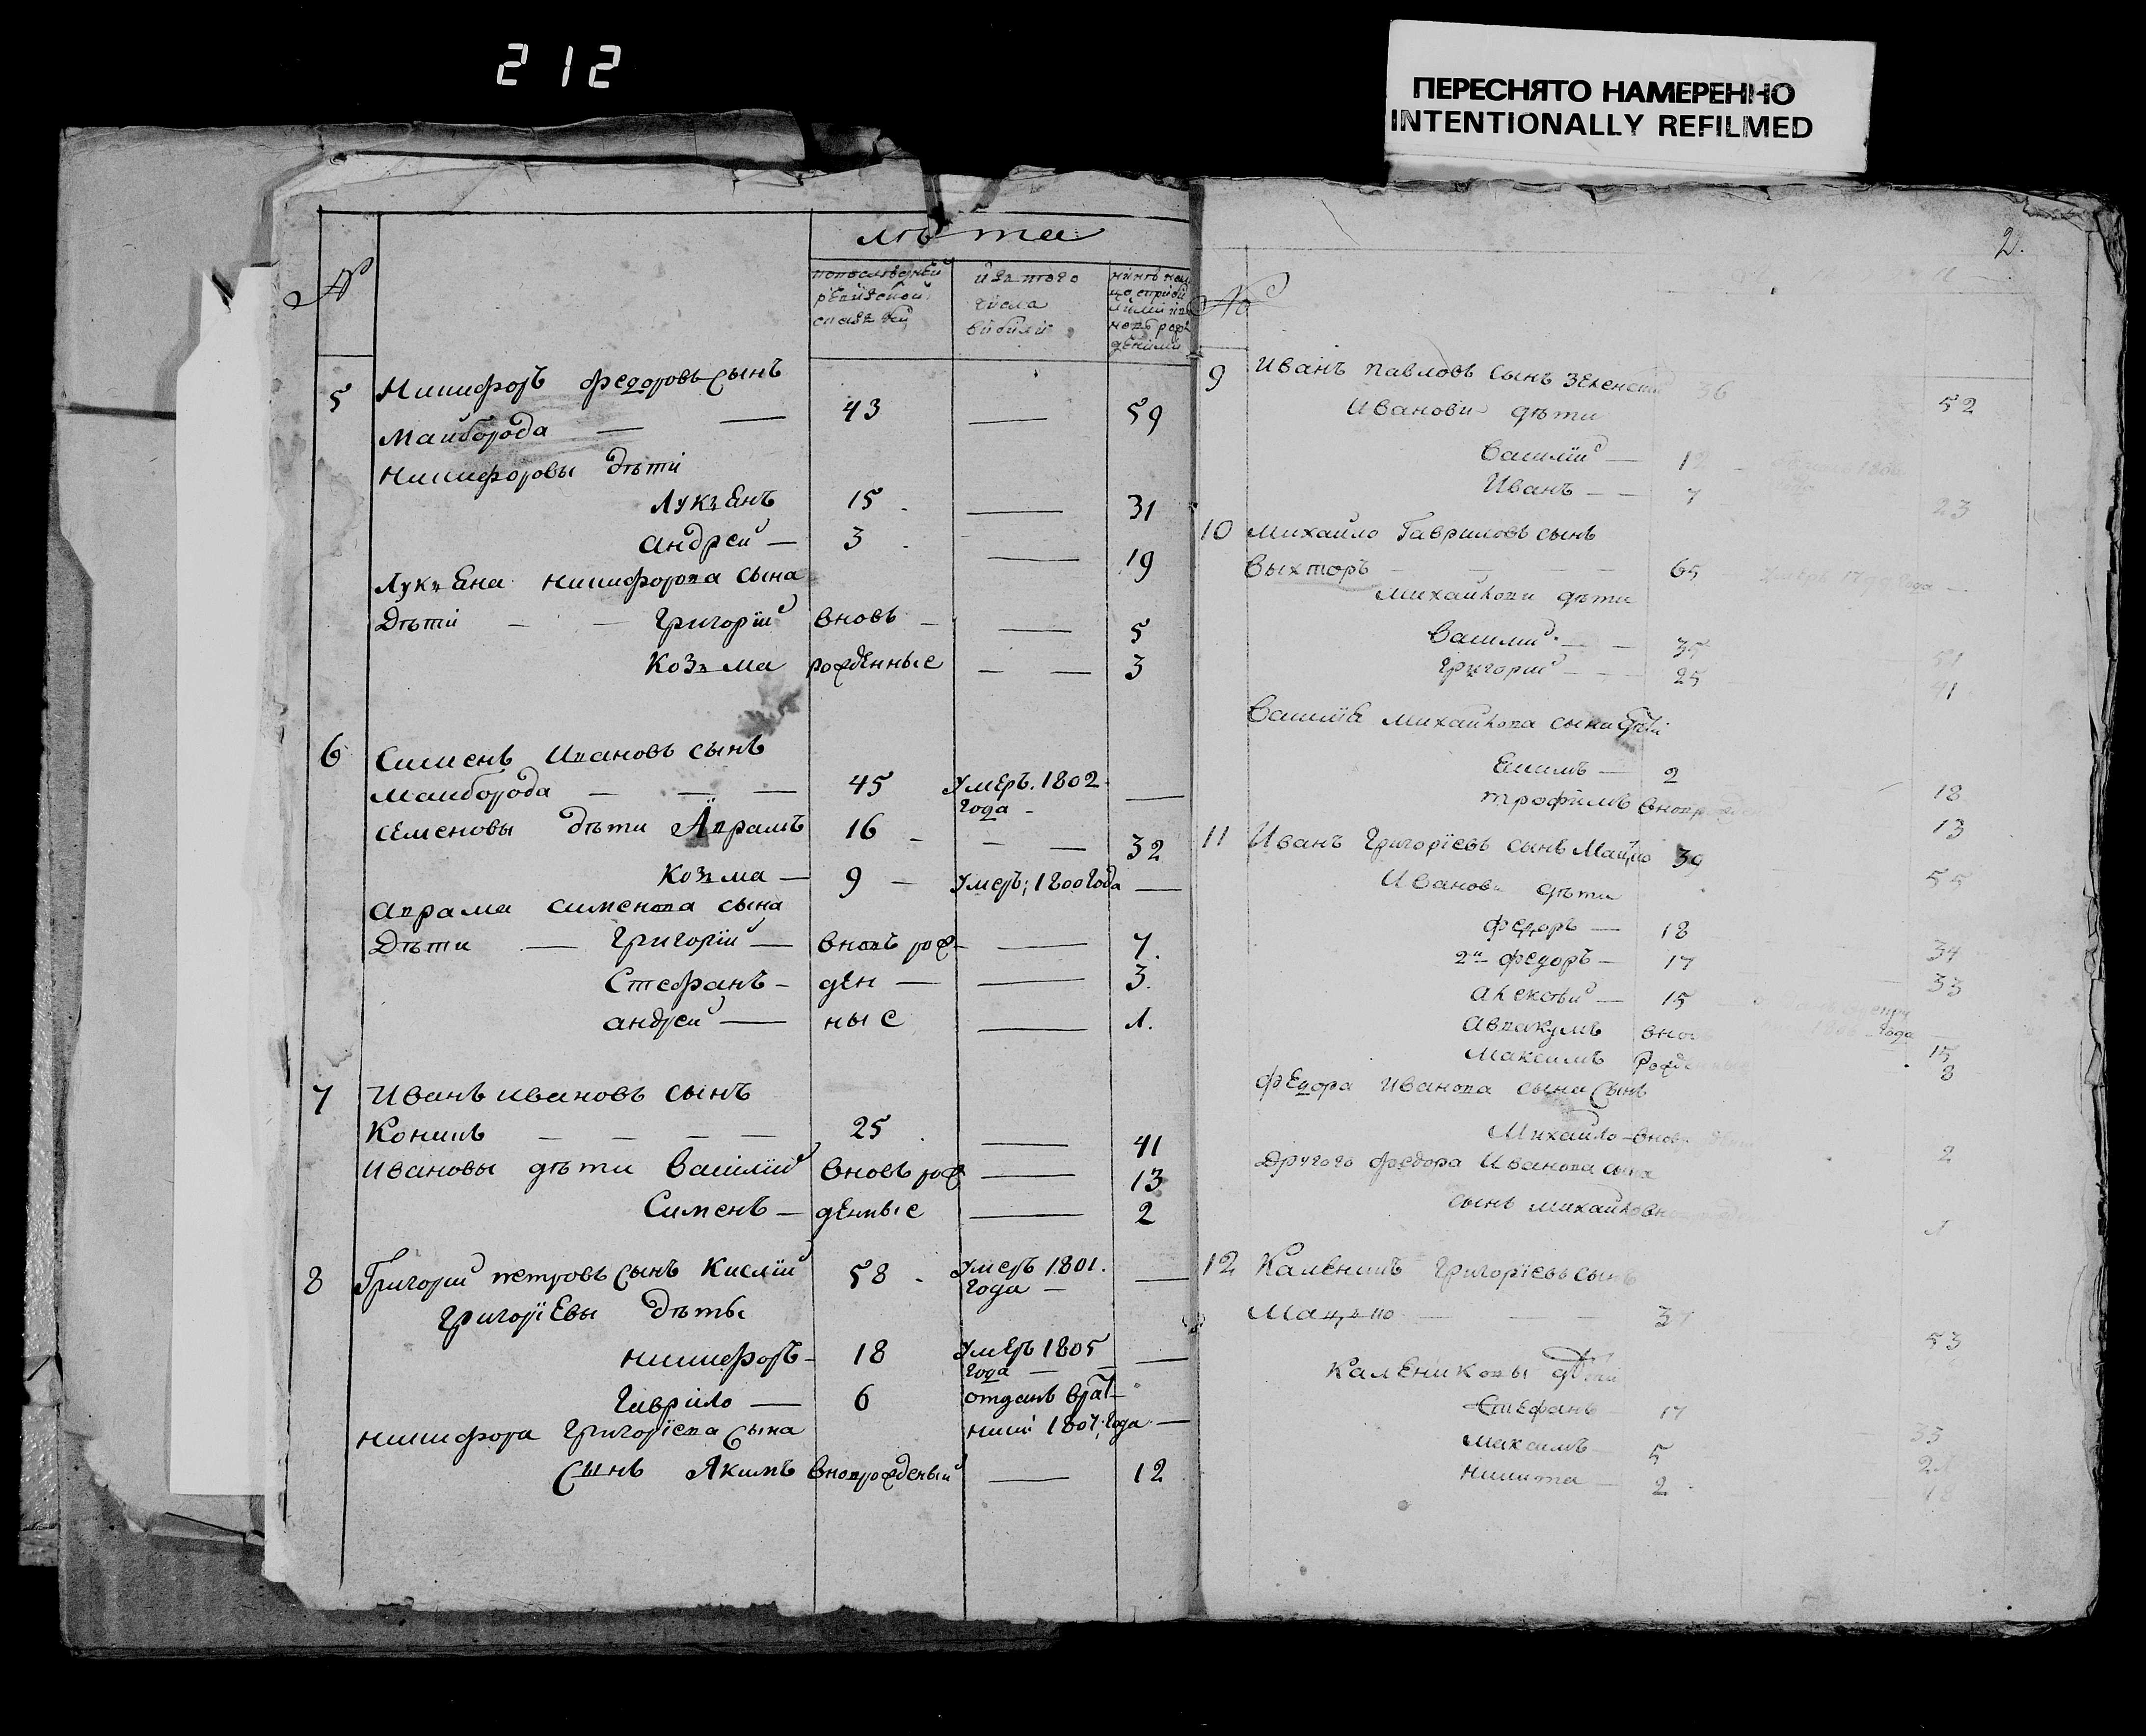 212
ПЕРЕСНЯТО НАМЕРЕННО
INTENTIONALLY REFILMED
№
лѣта
попоследней ревизской сказкѣ
изъ того числа выбыли
5 Никифоръ Федоровъ сынъ
Майборода — — 43 — 59
Никифоровы дѣти
Лукъенъ 15 — 31
андрей — 3 — 19
Лукъена никифорова сына
Дѣти — — Григорій вновь — — 5
Козъма рожденные — — 3
6 Сименъ Ивановъ сынъ
Майборода — — — 45 Умеръ 1802 года — —
Семеновы дѣти Аврамъ 16 — — — 32
Козма — 9 — Умеръ 1800 года —
аврама сименова сына
Дѣти — Григорій — вновъ рож — 7
Стефанъ — ден — — 3.
андрей — ные — 1.
7 Иванъ ивановъ сынъ
Коникъ — — — — 25 — 41
Ивановы дѣти Василій вновъ рож — 13
Сименъ — денные — 2
8 Григорий петровъ сынъ Кислій 58 Умеръ 1801. года — —
григоріевы дѣты
никифоръ — 18 Умеръ 1805 года — —
Гаврило — 6 отданъ 1807 года —
никифора Григоріева сына
сынъ Якимъ вновърожденый — 12
2.
№
9 Иванъ павловъ сынъ 36 52
Иванови дѣти
Василій — 12
Иванъ — — 7 23
10 Михайло Гавриловъ сынъ
Выхторъ 65
Михайлови дѣти
Василий — — 35 51
григорій — — 25 41
Василія михайлова сына дѣти
Екимъ — 2 18
трофимъ 13
11 Иванъ Григоріевъ сынъ 39 55
Иванови дѣти
федоръ — 18 34
2й федоръ — 17 33
алексѣй — 15 года
Авакумъ вновъ 15
Максимъ 8
федора Иванова сына сынъ
Михайло 2
Другого федора Иванова сына
сынъ михайло 1
12 Каленикъ григоріевъ сынъ
37 53
Калениковы дѣти
Стефанъ 17 33
максимъ 5
никита — 2 18